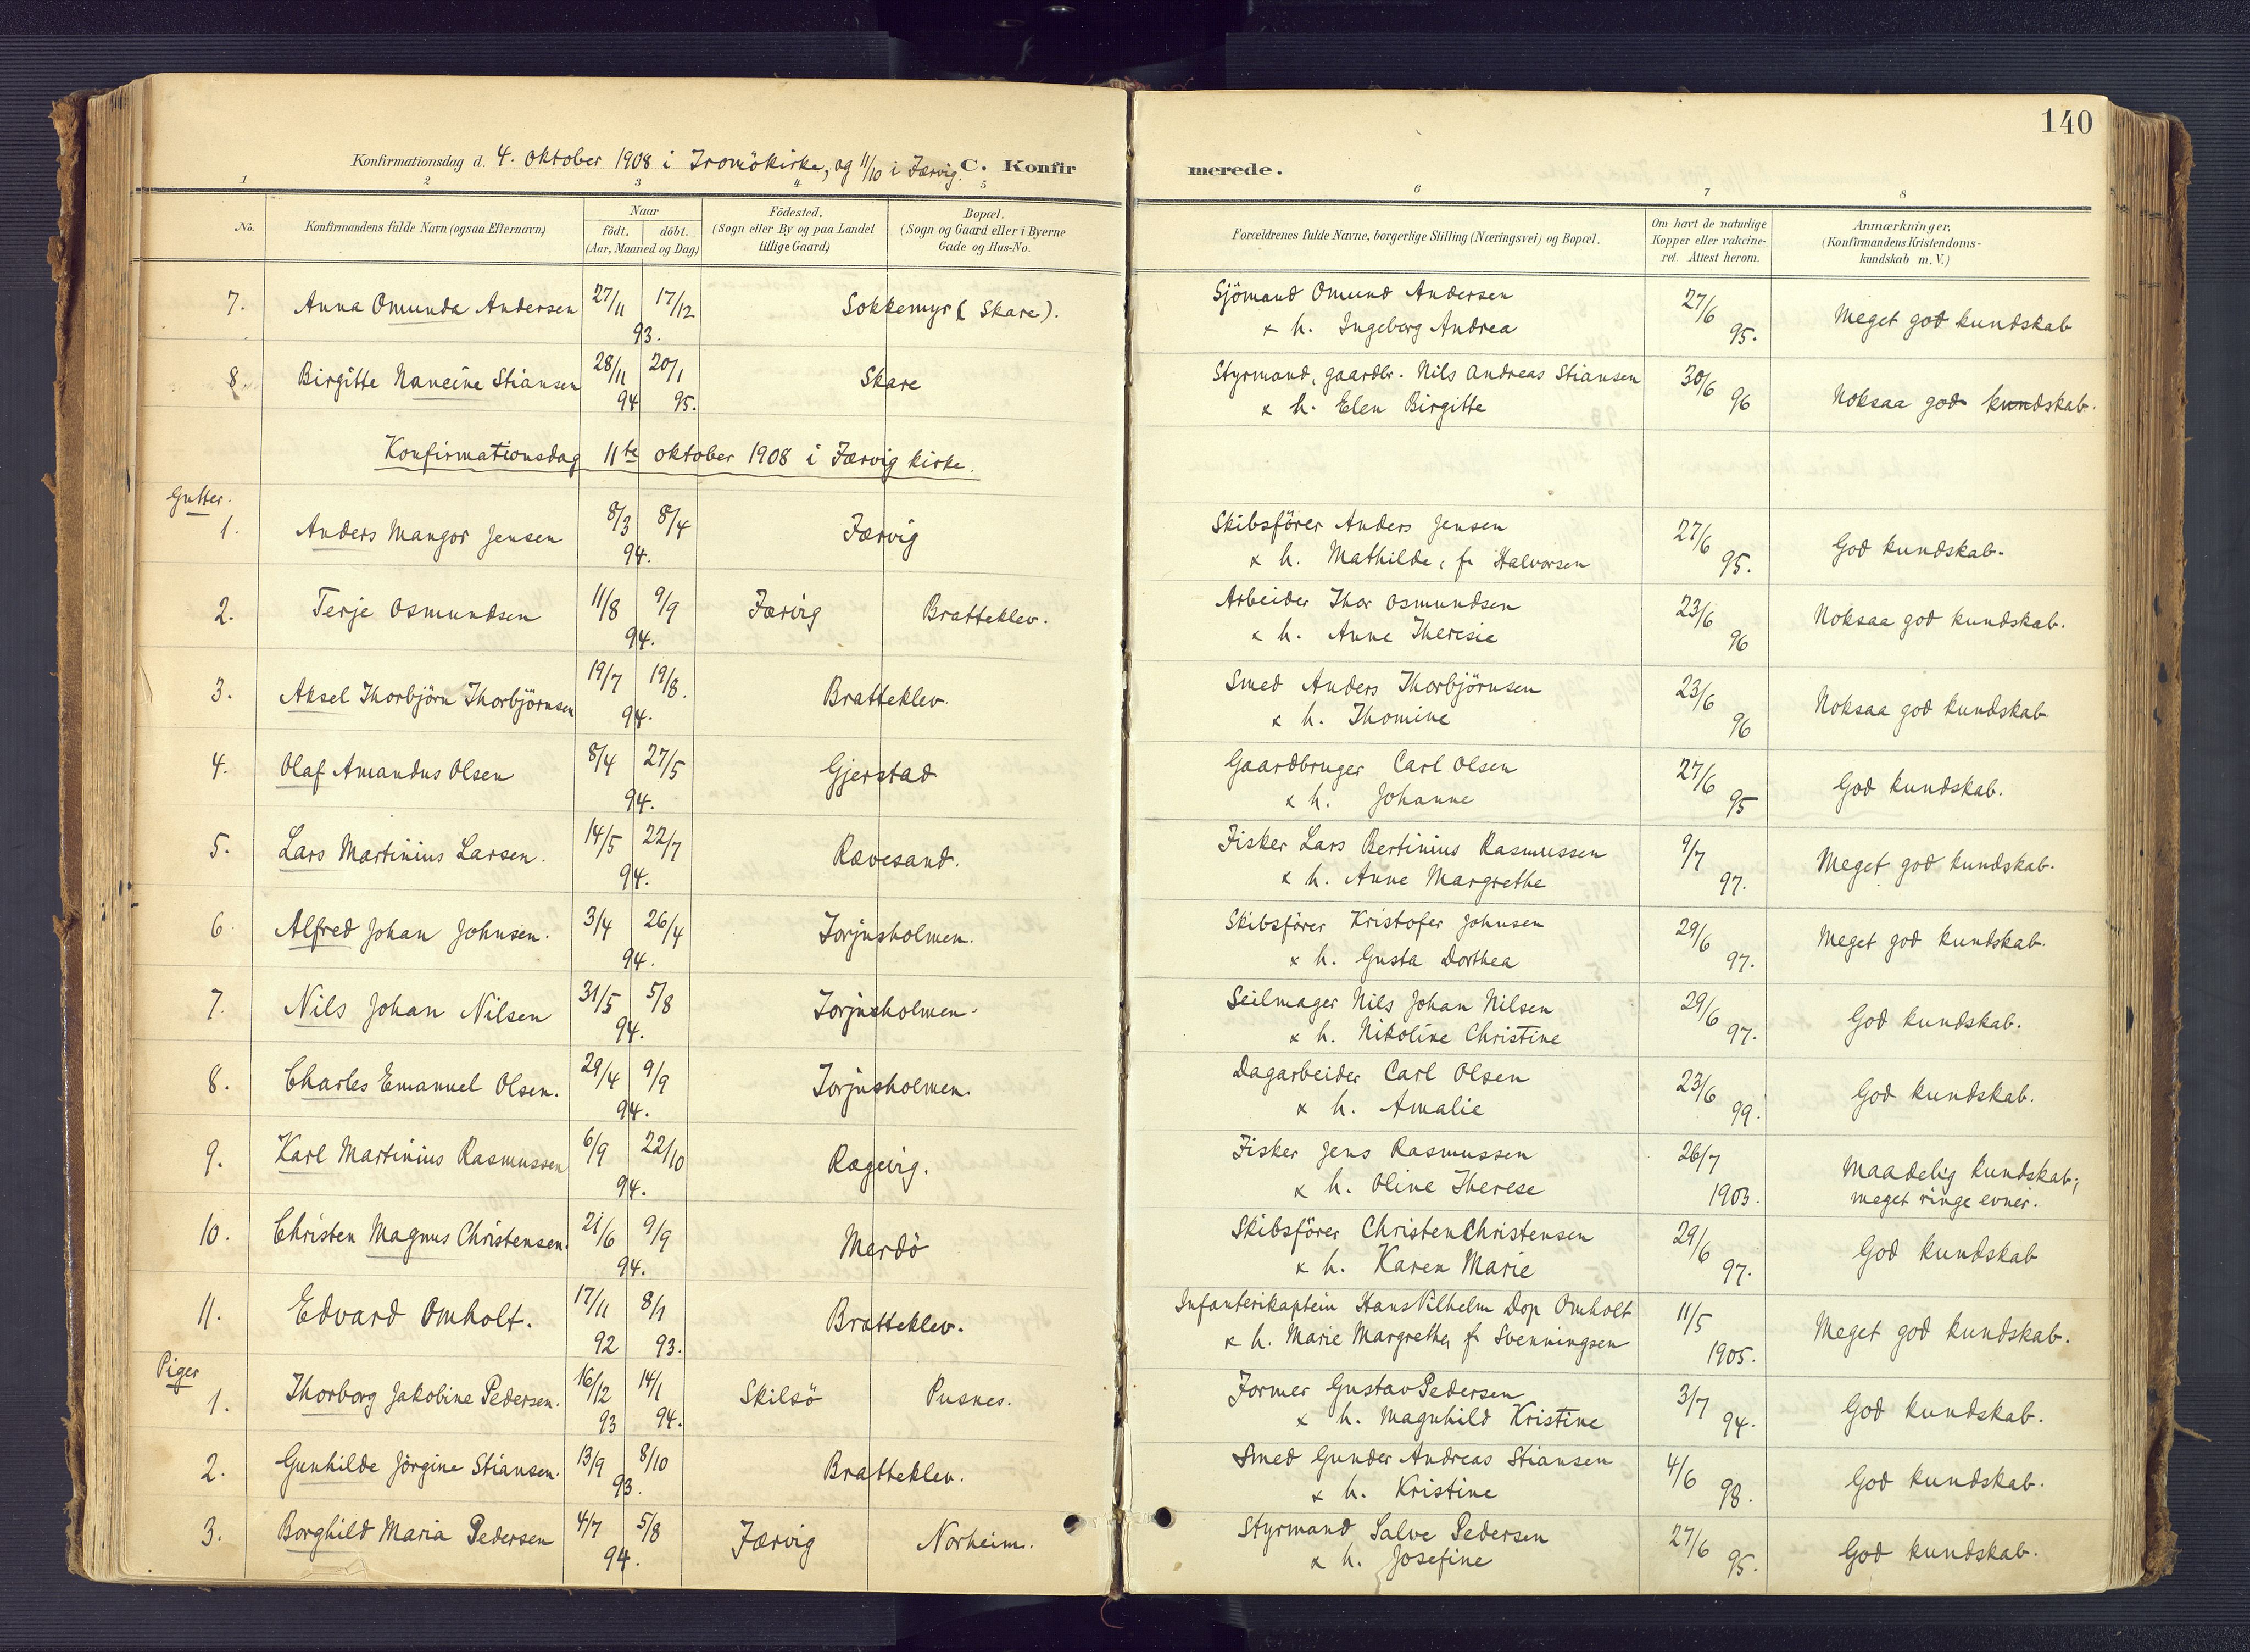 140
Konfirmationsdag d. 4. oktober 1908 i Tromökirke, og 11/10 i Færvig. C. Konfir
merede.
1 2 3 4 5 6 7 8
No.
Konfirmandens fulde Navn (ogsaa Efternavn)
Naar
födt. döbt.
(Aar, Maaned og Dag)
Födested.
(Sogn eller By og paa Landet
tillige Gaard)
Bopæl.
(Sogn og Gaard eller i Byerne
Gade og Hus-No.
Forældrenes fulde Navne, borgerlige Stilling (Næringsvei) og Bopæl.
Om havt de naturlige
Kopper eller vakcine-
ret. Attest herom.
Anmærkninger.
(Konfirmandens Kristendoms-
kundskab m. V.)
7. Anna Omunda Andersen 27/11 17/12 93. Sokkemyr (Skare). Sjömand Omund Andersen 27/6 95. Meget god kundskab
& h. Ingeborg Andrea
8. Birgitte Nancine Stiansen 28/11 94 20/1 95. Skare Styrmand, gaardbr. Nils Andreas Stiansen 30/6 96 Noksaa god kundskab.
& h. Elen Birgitte
Konfirmationsdag 11te oktober 1908 i Færvig kirke.
Gutter.
1. Anders Mangor Jensen 8/3 8/4 94. Færvig Skibsförer Anders Jensen 27/6 95. God kundskab.
& h. Mathilde, f. Halvorsen
2. Terje Osmundsen 11/8 9/9 94. Færvig Bratteklev. Arbeider Thor Osmundsen 23/6 96 Noksaa god kundskab.
& h. Anne Theresie
3. Aksel Thorbjörn Thorbjörnsen 19/7 19/8. 94. Bratteklev. Smed Anders Thorbjörnsen 23/6 96 Noksaa god kundskab
& h. Thomine
4. Olaf Amandus Olsen 8/4 27/5 94. Gjerstad Gaardbruger Carl Olsen 27/6 95 God kundskab.
& h. Johanne
5. Lars Martinius Larsen. 14/5 22/7 94. Rævesand. Fisker Lars Bertinius Rasmussen 9/7 97. Meget god kundskab.
& h. Anne Margrethe
6. Alfred Johan Johnsen. 3/4 26/4 94. Torjusholmen. Skibsförer Kristofer Johnsen 29/6 97. Meget god kundskab.
& h. Gusta Dorthea
7. Nils Johan Nilsen 31/5 5/8 94. Torjusholmen. Seilmager Nils Johan Nilsen 29/6 97. God kundskab.
& h. Nikoline Christine
8. Charles Emanuel Olsen. 29/4 9/9 94. Torjusholmen. Dagarbeider Carl Olsen 23/6 99. God kundskab.
& h. Amalie
9. Karl Martinius Rasmussen 6/9 22/10 94. Rægevig. Fisker Jens Rasmussen 26/7 1903. Maadelig kundskab;
& h. Oline Therese meget ringe evner.
10. Christen Magnus Christensen. 21/6 9/9 94. Merdö Skibsförer Christen Christensen 29/6 97. God kundskab
& h. Karen Marie
11. Edvard Omholt. 17/11 92 8/1 93. Bratteklev. Infanterikaptein Hans Vilhelm Dop Omholt 11/5 1905. Meget god kundskab.
& h. Marie Margrethe, f. Svenningsen
Piger
1. Thorborg Jakobine Pedersen. 16/12 93 14/1 94. Skilsö Pusnes. Former Gustav Pedersen 3/7 94. God kundskab.
& h. Magnhild Kristine
2. Gunhilde Jörgine Stiansen. 13/9 8/10 93. Bratteklev. Smed Gunder Andreas Stiansen 4/6 98. God kundskab.
& h. Kristine
3. Borghild Maria Pedersen 4/7 5/8 94. Færvig Norheim. Styrmand Salve Pedersen 27/6 95. God kundskab.
& h. Josefine